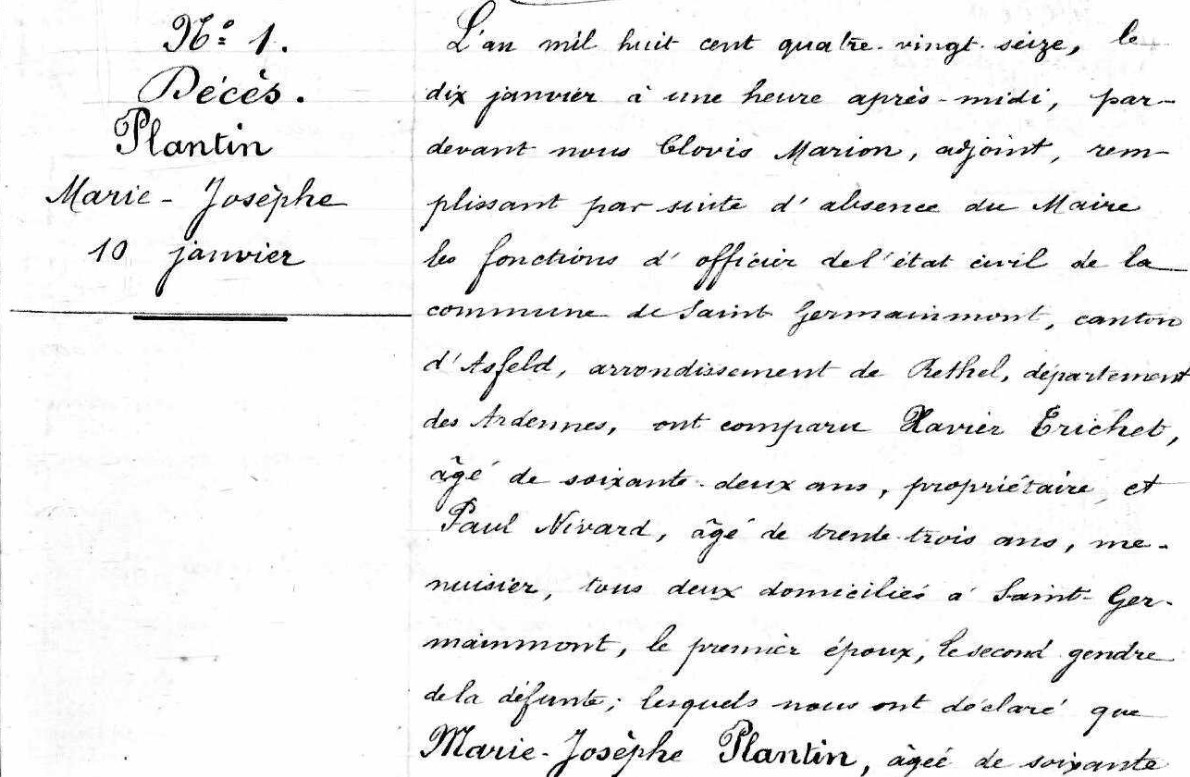 N° 1.
Décès.
Plantin
Marie - Josèphe
10 janvier
L'an mil huit cent quatre-vingt-seize, le
dix janvier à une heure après-midi, par-
devant nous Clovis Marion, adjoint, rem-
plissant par suite d'absence du Maire
les fonctions d'officier de l'état civil de la
commune de Saint Germainmont, canton
d'Asfeld, arrondissement de Rethel, département
des Ardennes, ont comparu Xavier Erichet,
âgé de soixante-deux ans, propriétaire, et
Paul Nivard, âgé de trente-trois ans, me-
nuisier, tous deux domiciliés à Saint-Ger-
mainmont, le premier époux, le second gendre
de la défunte; lesquels nous ont déclaré que
Marie-Josèphe Plantin, âgée de soixante